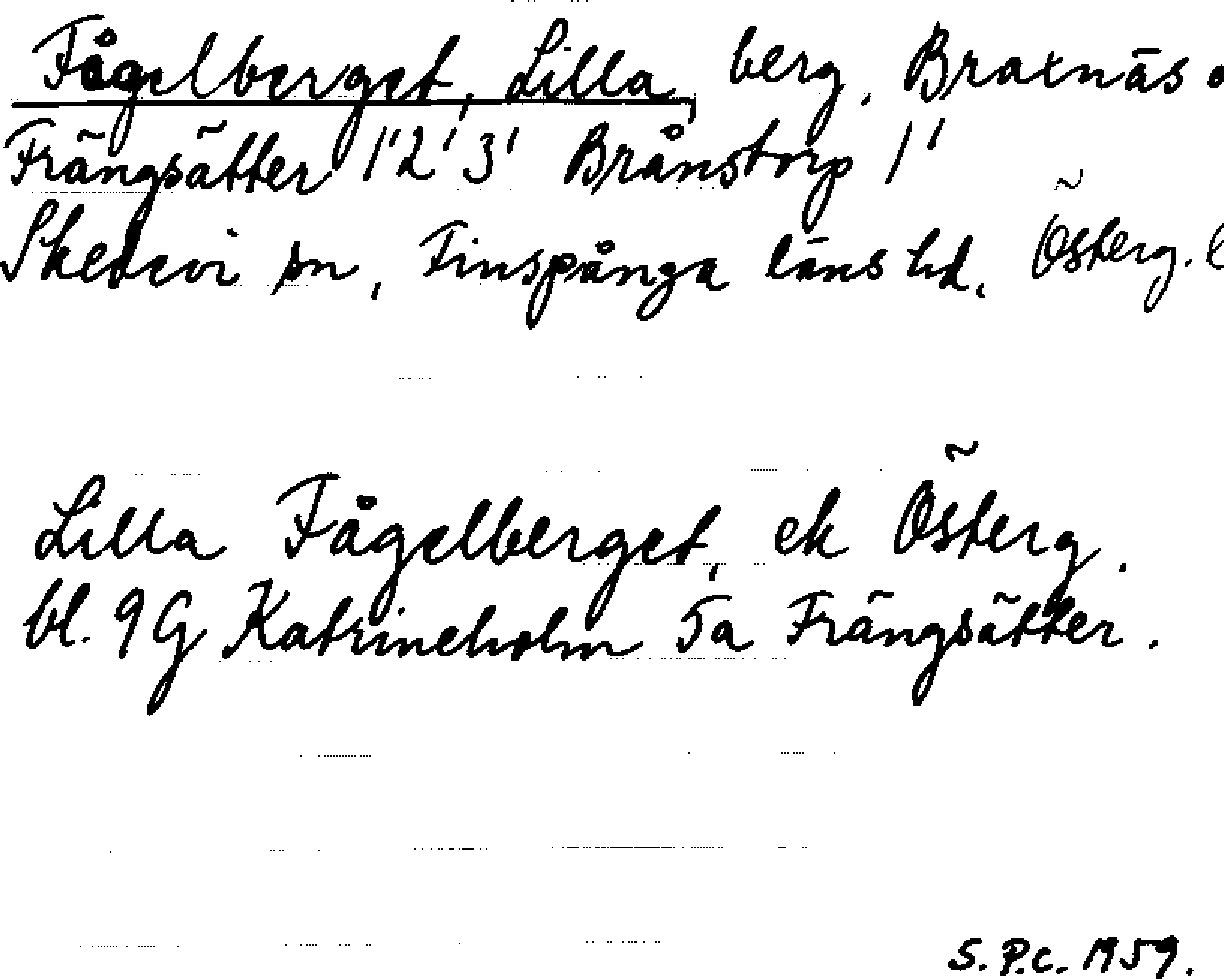 Fågelberget, Lilla, berg, Braxnäs o
Frängsätter 1'2'3' Brånstorp 1'
Skedevi sn, Finspånga läns hd, Österg. l
Lilla Fågelberget, ek Österg.
bl. 9G Katrineholm 5a Frängsätter.
S.P.C. 1959.